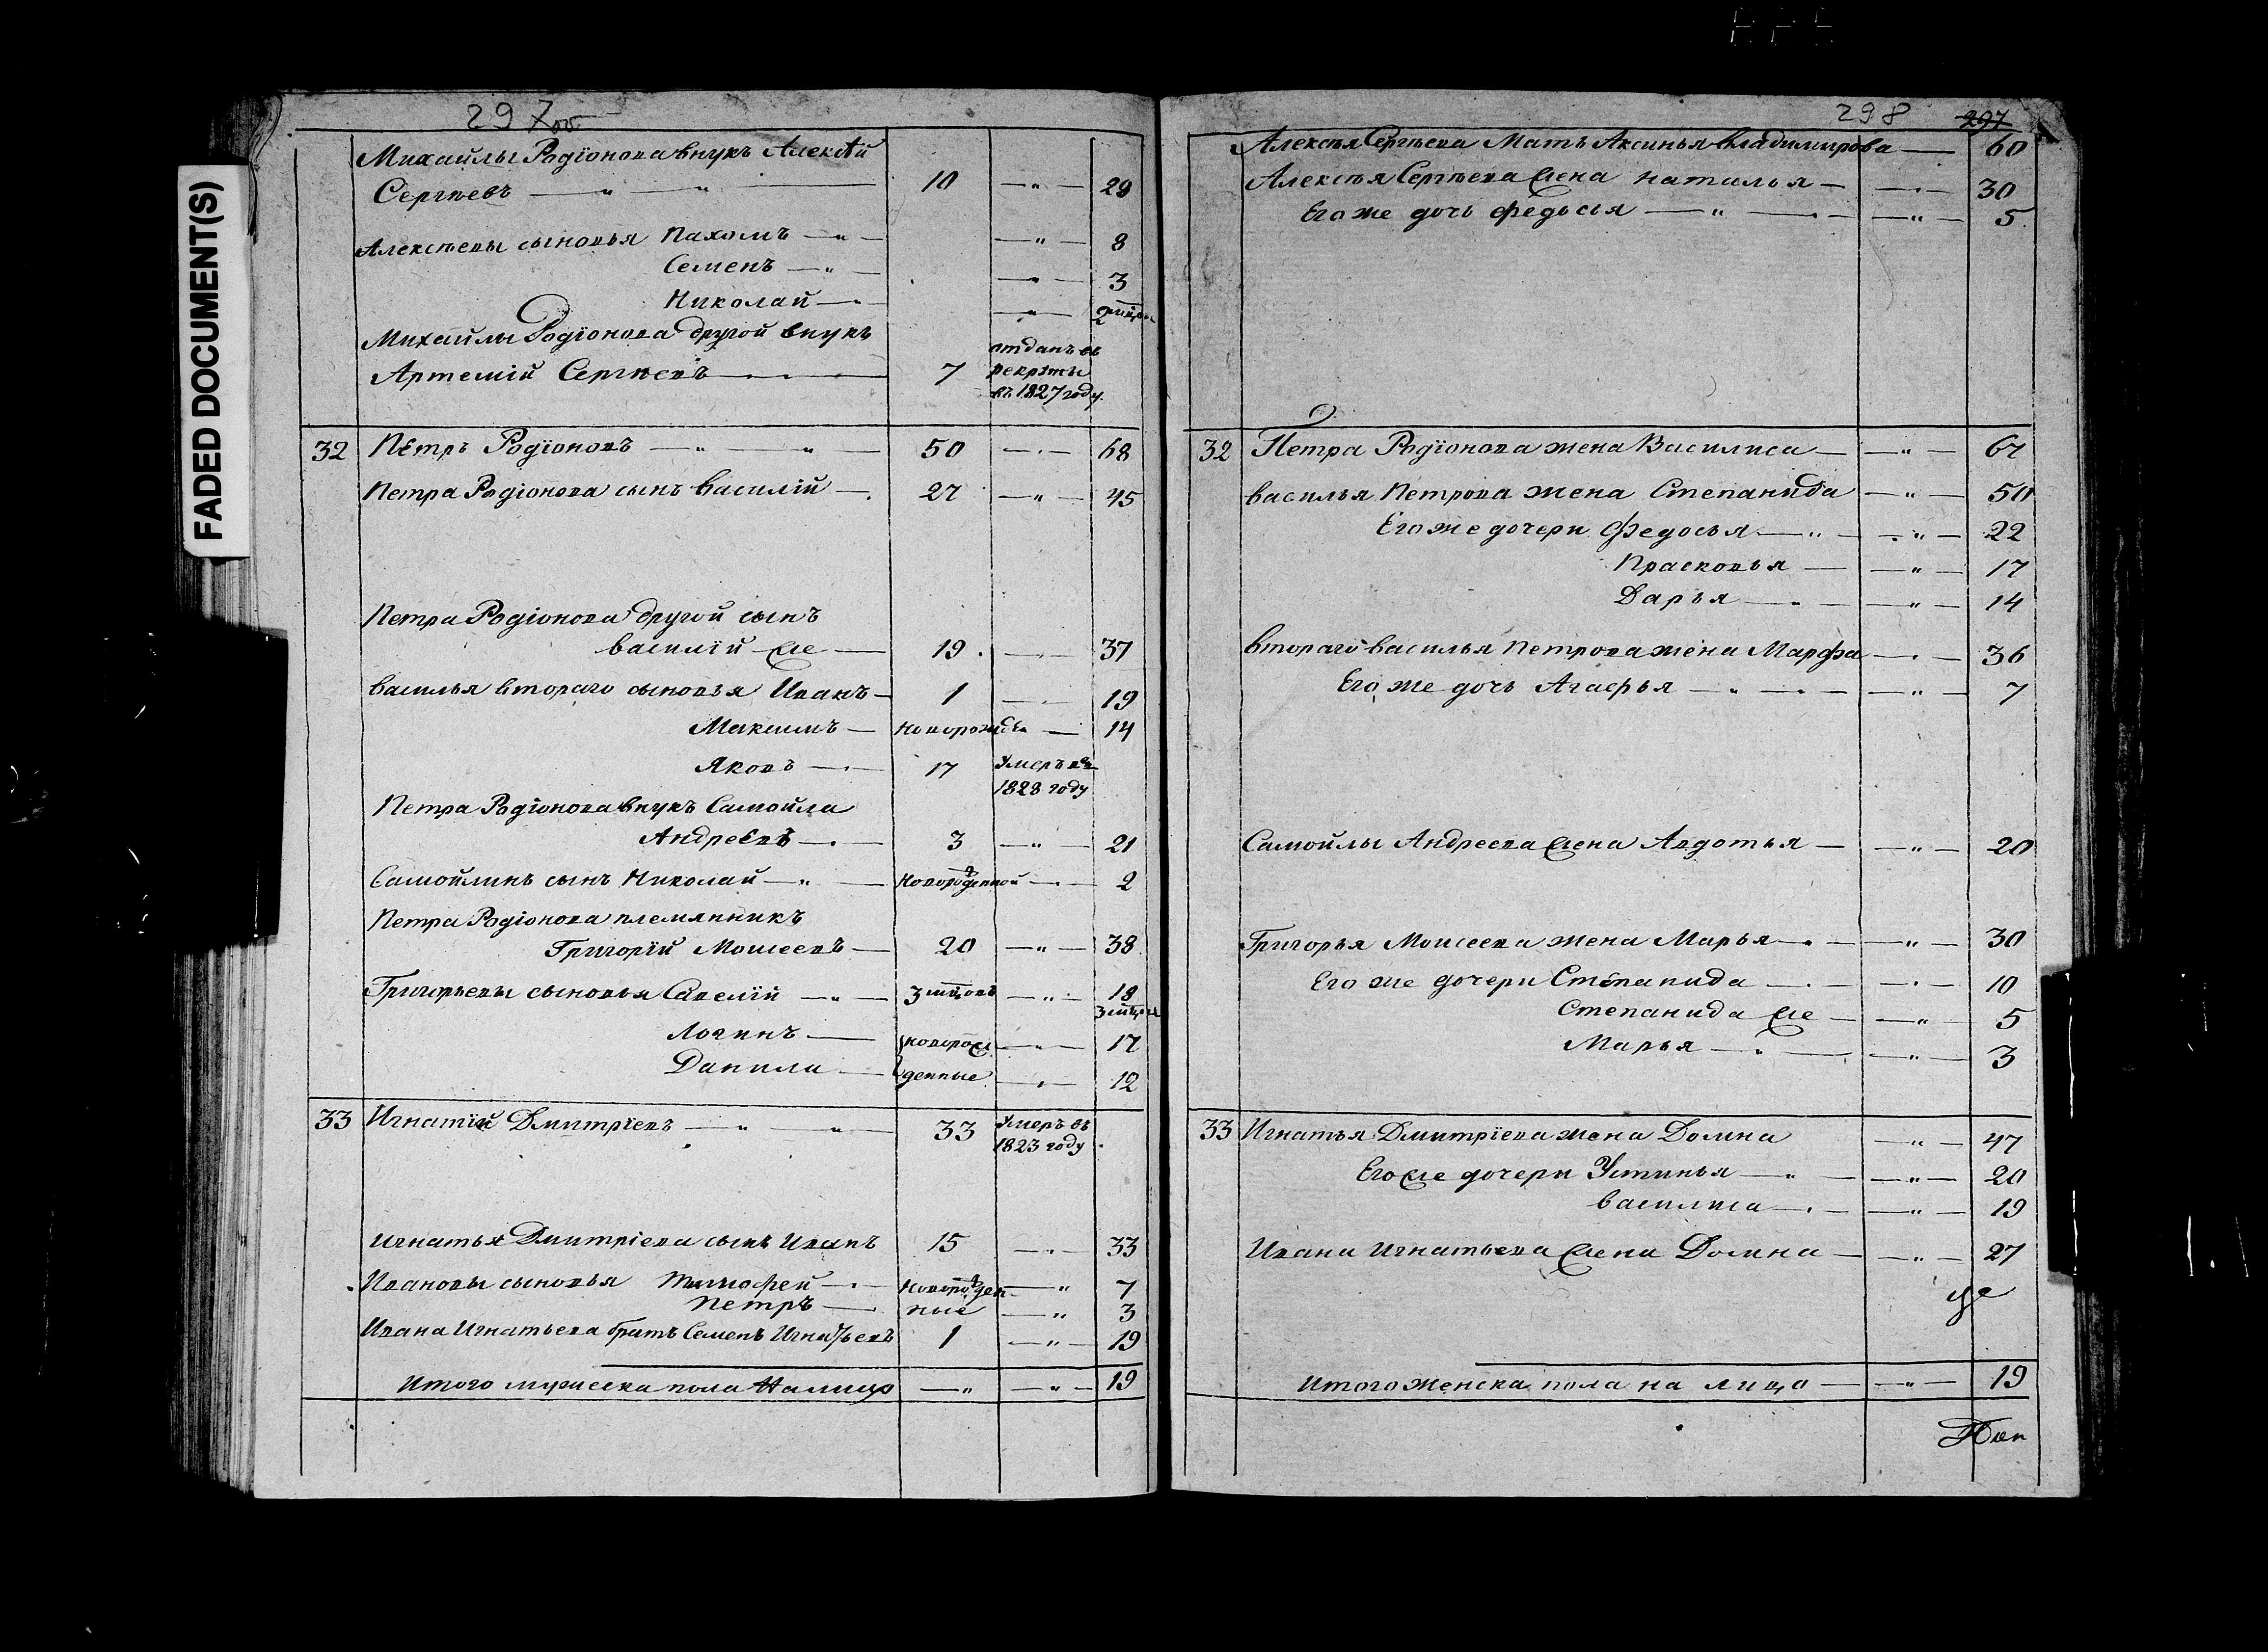 FADED DOCUMENT(S)
297об
Михайлы Родіонова внукъ Алексѣй
Сергѣевъ — " — " — 10 — " — 29
Алексѣевы сыновья Пахомъ — " — — " — 8
Семенъ — " — — " — 3
Николай — " — — " — 2
Михайлы Родіонова другой внукъ
Артемій Сергѣевъ — 7 отданъ въ
рекруты
въ 1827 году
32 Петръ Родіоновъ — " — " — 50 — " — 68
Петра Родіонова сынъ Василій — 27 — " — 45
Петра Родіонова другой сынъ
Василій же — 19 — " — 37
Василья втораго сыновья Иванъ — 1 — " — 19
Максимъ — новорожд — 14
Яковъ — " — 17 Умеръ въ
1828 году
Петра Родіонова внукъ Самойла
Андреевъ — " — 3 — " — 21
Самойлинъ сынъ Николай — " — новорожденной — " — 2
Петра Родіонова племянникъ
Григорій Моисеевъ — 20 — " — 38
Григорьевы сыновья Савелій — " — 3 мцовъ — " — 18
3 мцовъ
Логинъ — новорож — " — 17
Данила — денные — " — 12
33 Игнатій Дмитріевъ — " — " — 33 Умеръ въ
1823 году
Игнатья Дмитріева сынъ Иванъ 15 — " — 33
Ивановы сыновья Тимофей — " — новорожден — " 7
Петръ — ные — " 3
Ивана Игнатьева братъ Семенъ Игнатьевъ 1 — " — 19
Итого мужеска пола налицо — " — " — 19
298 297
Алексѣя Сергѣева Мать Аксинья Владимирова — 60
Алексѣя Сергѣева жена Наталья — — " — 30
Его же дочь Федосья — " — — " — 5
32 Петра Родіонова жена Василиса — — " — 67
Василья Петрова жена Степанида — " — 50
Его же дочери Федосья — " — — " — 22
Прасковья — — " — 17
Дарья — " — — " — 14
Втораго Василья Петрова жена Марфа — " — 36
Его же дочь Агафья — " — — " — 7
Самойлы Андреева жена Авдотья — — " — 20
Григорья Моисеева жена Марья — " — — " — 30
Его же дочери Степанида — — " — 10
Степанида же — — " — 5
Марья — " — — " — 3
33 Игнатья Дмитріева жена Домна — " — 47
Его же дочери Устинья — " — — " — 20
Василиса — " — — " — 19
Ивана Игнатьева жена Домна — — " — 27
Итого женска пола на лицо — — " — 19